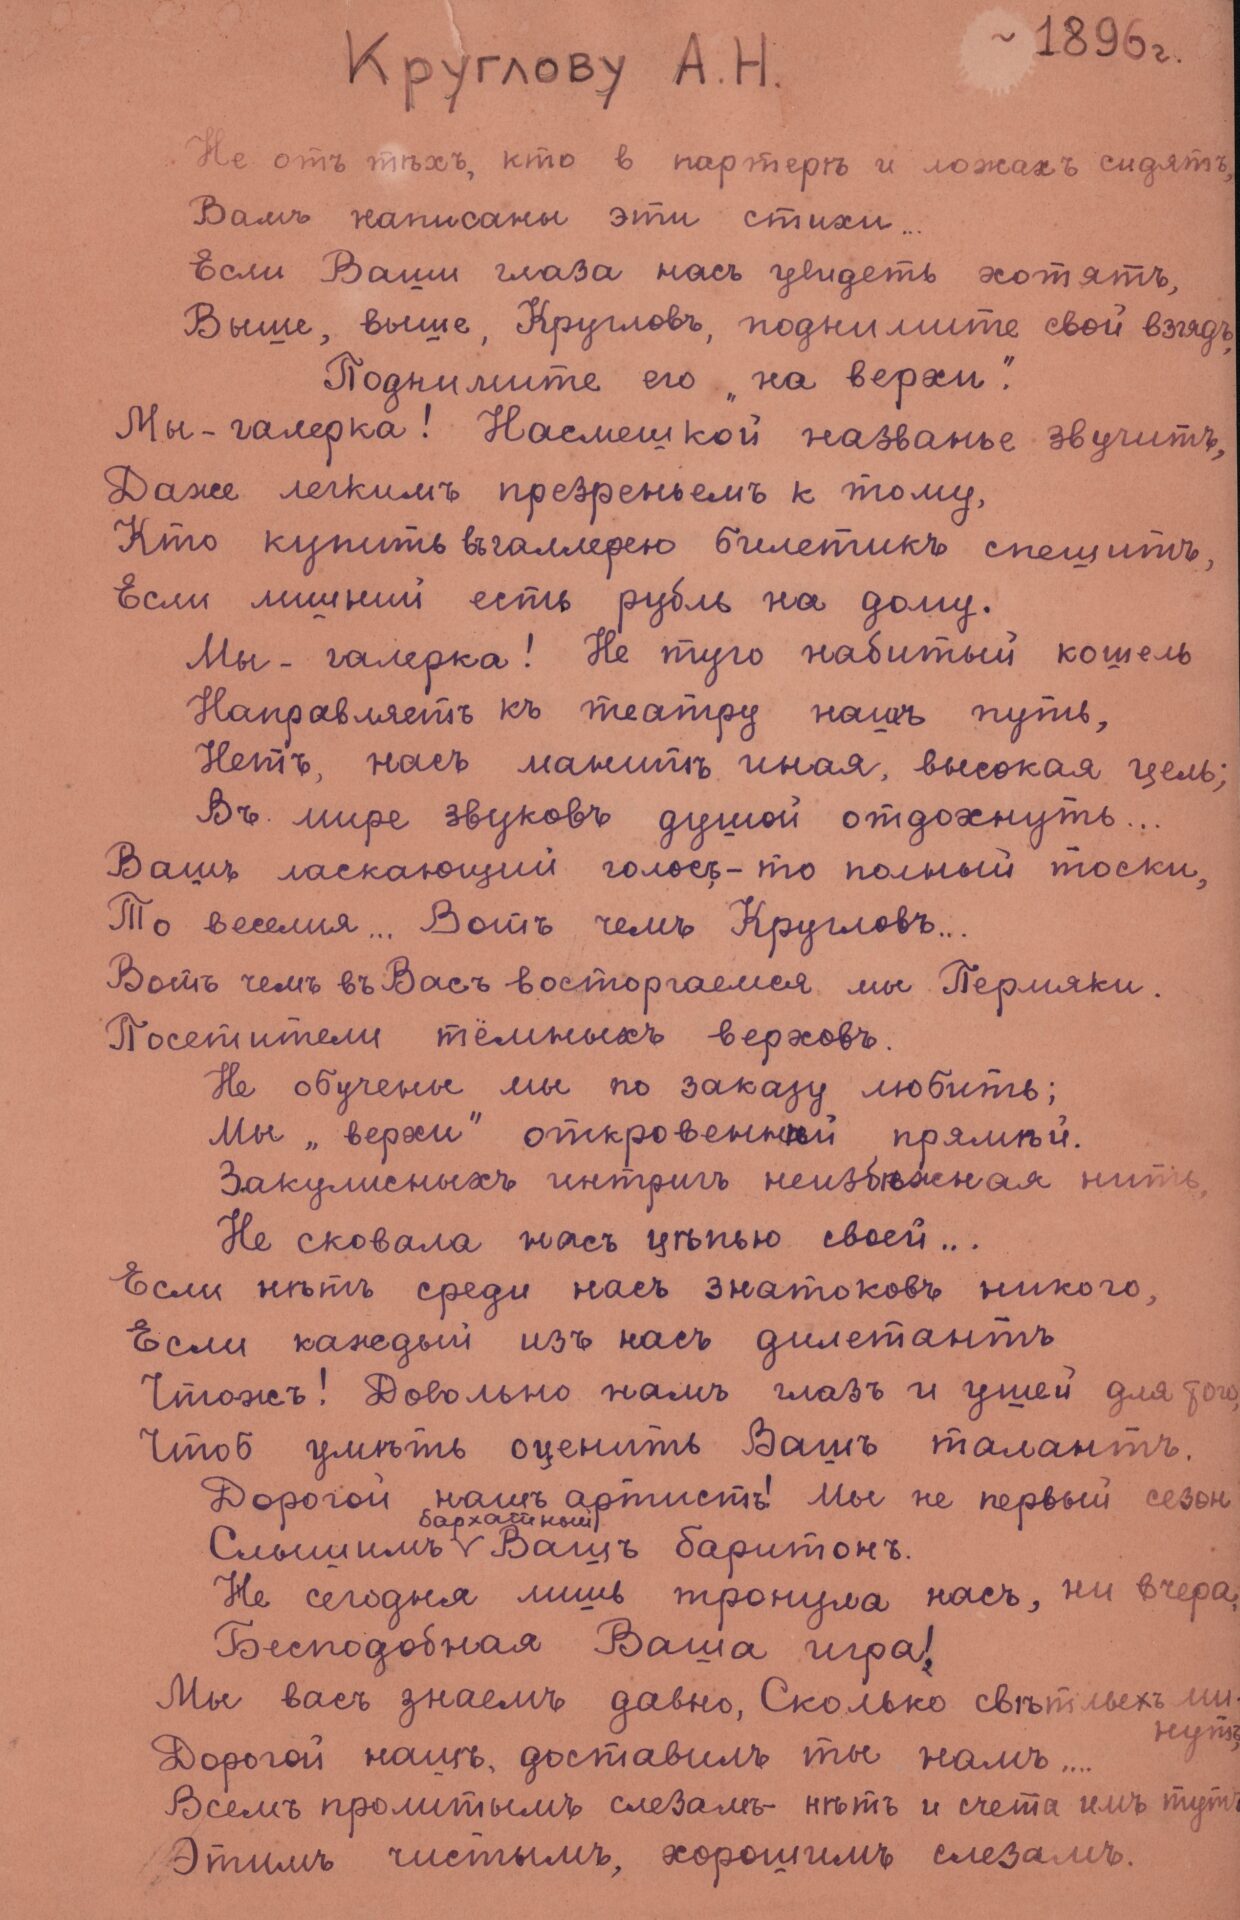 ~ 1896г.
Круглову А.Н.
Не отъ тѣхъ, кто в партерѣ и ложахъ сидятъ,
Вамъ написаны эти стихи...
Если Ваши глаза насъ увидеть хотятъ,
Выше, выше, Кругловъ, поднимите свой взглядъ,
Поднимите его „на верхи".
Мы - галерка! Насмешкой названье звучитъ,
Даже легкимъ презреньемъ к тому,
Кто купить въ галлерею билетикъ спешитъ,
Если лишний есть рубль на дому.
Мы - галерка! Не туго набитый кошель
Направляетъ къ театру нашъ путь,
Нетъ, насъ манитъ иная, высокая цель;
Въ мире звуковъ душой отдохнуть...
Вашъ ласкающий голосъ - то полный тоски,
То веселия... Вотъ чемъ Кругловъ...
Вотъ чемъ въ Васъ восторгаемся мы Пермяки.
Посетители тёмныхъ верховъ.
Не обучены мы по заказу любить;
Мы „верхи" откровенный прямѣй.
Закулисныхъ интригъ неизбѣжная нить,
Не сковала насъ цѣпью своей...
Если нѣтъ среди насъ знатоковъ никого,
Если каждый изъ насъ дилетантъ
Чтожъ! Довольно намъ глазъ и ушей для того,
Чтоб умѣть оценить Вашъ талантъ.
Дорогой нашъ артистъ! Мы не первый сезон
бархатный
Слышимъ Вашъ баритонъ.
Не сегодня лишь тронула насъ, ни вчера,
Бесподобная Ваша игра!
Мы васъ знаемъ давно, Сколько свѣтлыхъ ми-
нутъ,
Дорогой нашъ, доставилъ ты намъ....
Всемъ пролитымъ слезамъ - нѣтъ и счета имъ тутъ
Этимъ чистымъ, хорошимъ слезамъ.